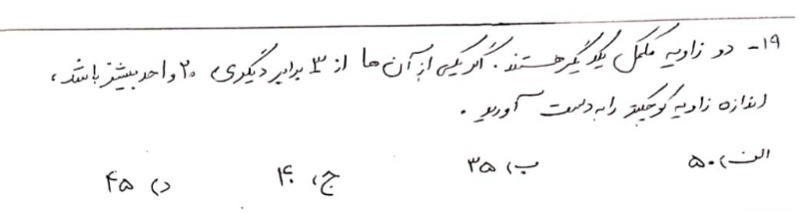 ۱۹- دو زاویه مکمل یکدیگر هستند. اگر یکی از آن ها از ۳ برابر دیگری ۲۰ واحد بیشتر باشد،
اندازه زاویه کوچکتر را به دست آورید.
الف) ۵۰ ب) ۳۵ ج) ۴۰ د) ۴۵